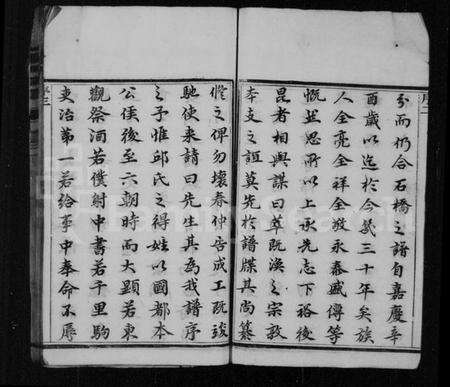 序二
分而仍合石橋之譜自嘉慶辛
酉歲以迄於今幾三十年矣族
人全亮全祥全敘永泰盛傳等
慨然思所以上承先志下裕後
昆者相與謀曰萃既渙之宗敦
本支之誼莫先於譜牒其尚纂
修之俾勿壞春仲告成工既竣
馳使來請曰先生其為我譜序
之予惟邱氏之得姓以國都本
公侯後至六朝時而大顯若東
觀祭酒若僕射中書若千里駒
吏治第一若給事中奉命不辱
序三